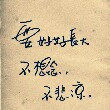 要好好長大
不想念,
不悲涼.